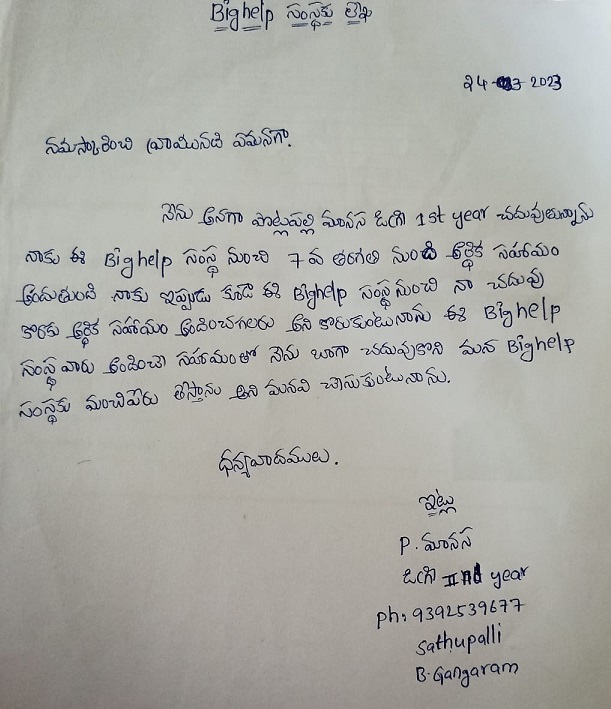 Bighelp సంస్థకు లేఖ
24-03-2023
నమస్కరించి వ్రాయునది ఏమనగా.
నేను అనగా పొట్లపల్లి మానస డిగ్రీ 1st year చదువుతున్నాను
నాకు ఈ Bighelp సంస్థ నుంచి 7వ తరగతి నుండి ఆర్థిక సహాయం
అందుతుంది నాకు ఇప్పుడు కూడా ఈ Bighelp సంస్థ నుంచి నా చదువు
కొరకు ఆర్థిక సహాయం అందించగలరు అని కోరుకుంటునాను ఈ Bighelp
సంస్థ వారు అందించే సహాయంతో నేను బాగా చదువుకొని మన Bighelp
సంస్థకు మంచిపేరు తెస్తానం అని మనవి చేసుకుంటునాను.
ధన్యవాదములు.
ఇట్లు
P. మానస
డిగ్రీ IInd year
Ph: 9392539677
Sathupalli
B. Gangaram